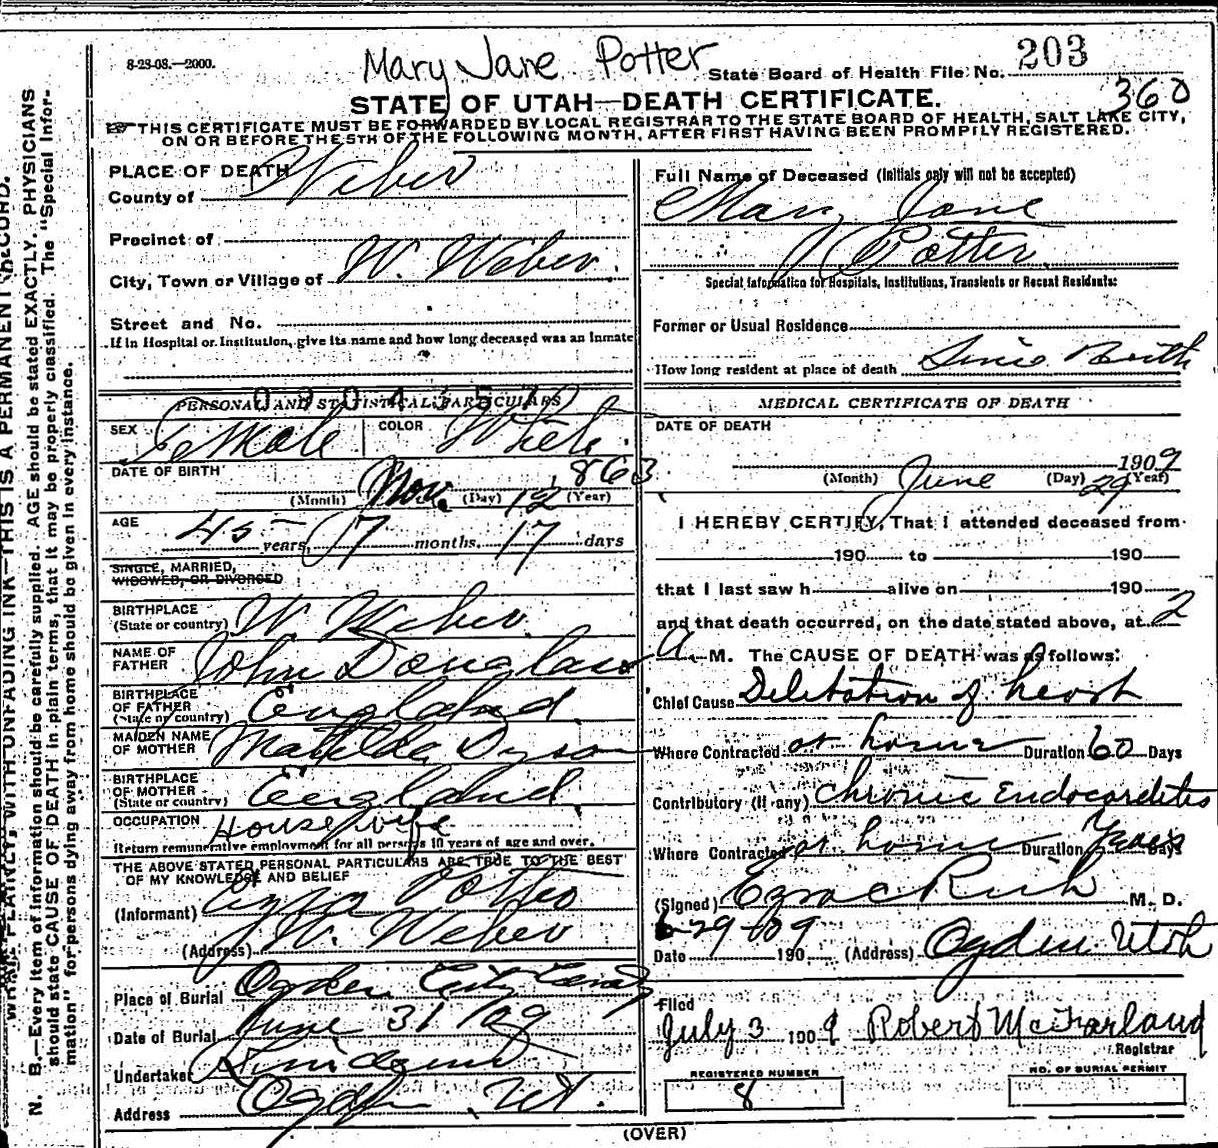 8-28-08.—2000.
Mary Jane Potter
State Board of Health File No. 203
360
STATE OF UTAH—DEATH CERTIFICATE.
THIS CERTIFICATE MUST BE FORWARDED BY LOCAL REGISTRAR TO THE STATE BOARD OF HEALTH, SALT LAKE CITY,
ON OR BEFORE THE 5TH OF THE FOLLOWING MONTH, AFTER FIRST HAVING BEEN PROMPTLY REGISTERED.
PLACE OF DEATH
County of Weber
Precinct of
City, Town or Village of W. Weber
Street and No.
If in Hospital or Institution, give its name and how long deceased was an Inmate
PERSONAL AND STATISTICAL PARTICULARS
SEX Female COLOR White
DATE OF BIRTH
(Month) Nov. (Day) 12 (Year) 1863
AGE
45 years, 7 months. 17 days
SINGLE, MARRIED,
WIDOWED, OR DIVORCED
BIRTHPLACE
(State or country) W. Weber
NAME OF
FATHER John Douglass
BIRTHPLACE
OF FATHER
(State or country) England
MAIDEN NAME
OF MOTHER Matilda Dyson
BIRTHPLACE
OF MOTHER
(State or country) England
OCCUPATION Housewife
Return remunerative employment for all persons 10 years of age and over.
THE ABOVE STATED PERSONAL PARTICULARS ARE TRUE TO THE BEST
OF MY KNOWLEDGE AND BELIEF
(Informant) Ezra Potter
(Address) W. Weber
Place of Burial Ogden City
Date of Burial June 31/09
Undertaker
Address Ogden, Ut.
Full Name of Deceased (Initials only will not be accepted)
Mary Jane
Potter
Special Information for Hospitals, Institutions, Transients or Recent Residents:
Former or Usual Residence
How long resident at place of death Since Birth
MEDICAL CERTIFICATE OF DEATH
DATE OF DEATH
1909
(Month) June (Day) 29 (Year)
I HEREBY CERTIFY, That I attended deceased from
190 to 190
that I last saw h alive on 190
and that death occurred, on the date stated above, at 2
A. M. The CAUSE OF DEATH was as follows:
Chief Cause Deletation of heart
Where Contracted at home Duration 60 Days
Contributory (if any) Chronic Endocarditis
Where Contracted at home Duration Years Days
(Signed) Ezra C Rich M. D.
6-29-09
Date 190 (Address) Ogden Utah
Filed
July 3 1909 Robert McFarland
Registrar
REGISTERED NUMBER
8
NO. OF BURIAL PERMIT
(OVER)
WRITE PLAINLY, WITH UNFADING INK—THIS IS A PERMANENT RECORD.
N. B.—Every item of information should be carefully supplied. AGE should be stated EXACTLY. PHYSICIANS
should state CAUSE OF DEATH in plain terms, that it may be properly classified. The "Special Infor-
mation" for persons dying away from home should be given in every instance.